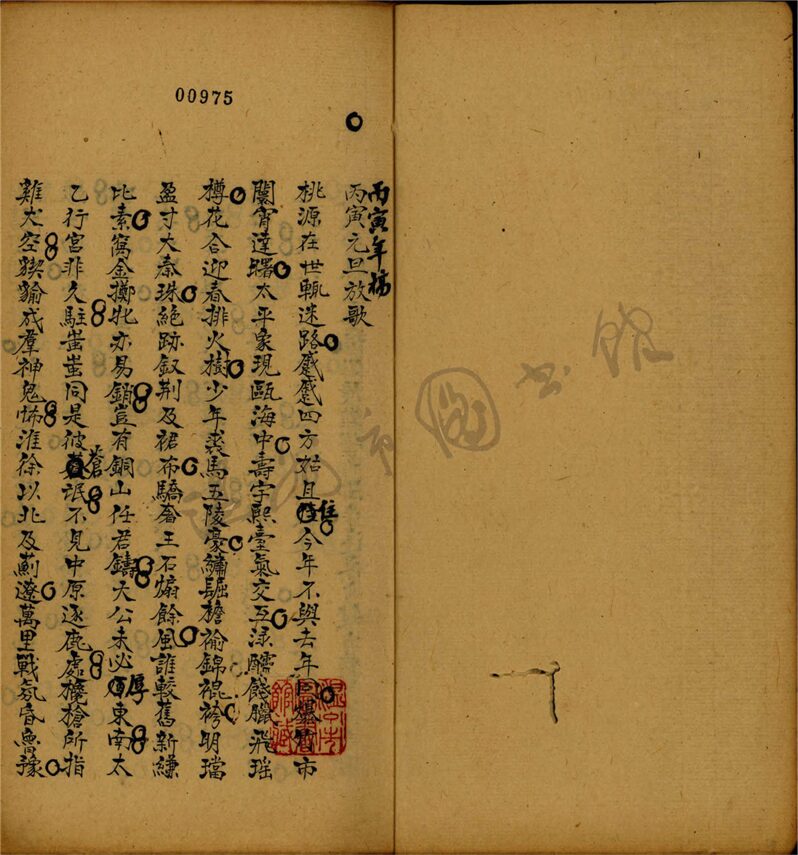 00975
丙寅年稿
丙寅元旦放歌
桃源在世輒迷路蹙蹙四方姑且住今年不與去年同爆竹市
闤宵達曙太平象現甌海中壽宇熙臺氣交互淥醽餞臘飛瑤
樽花合迎春排火樹少年裘馬五陵豪繡䘿襜褕錦裩袴明璫
盈寸大秦珠絕跡釵荆及裙布驕奢王石煽餘風誰較舊新縑
比素窩金擲牝亦易銷豈有銅山任君鑄天公未必厚東南太
乙行宮非久駐蚩蚩同是彼蒼氓不見中原逐鹿處欃槍所指
雞犬空猰貐成羣神鬼怖淮徐以北及薊遼萬里戰氛昏魯豫
溫州市
圖書館
館藏